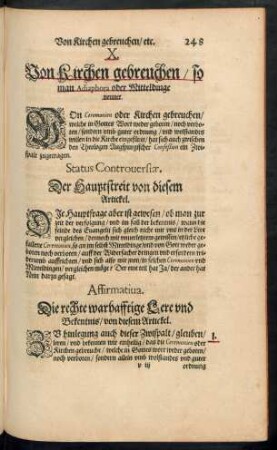 Von Kirchen gebreuchen, etc. 248
X.
Von Kirchen gebreuchen / so
man Adiaphora oder Mitteldinge
nennet.
VOn Ceremonien oder Kirchen gebreuchen /
welche in Gottes Wort weder geboten / noch verbo-
ten / sondern vmb guter ordnung / vnd wolstandes
willen in die Kirche eingefüret / hat sich auch zwischen
den Theologen Augspurgischer Confession ein Zwi-
spalt zugetragen.
Status Controuersiæ.
Der Hauptstreit von diesem
Artickel.
DIe Hauptfrage aber ist gewesen / ob man zur
zeit der verfolgung / vnd im fall der bekentnis / wann die
feinde des Euangelij sich gleich nicht mit vns in der Lere
vergleichen / dennoch mit vnuerletztem gewissen / etliche ge-
fallene Ceremonien, so an im selbst Mitteldinge / vnd von Gott weder ge-
boten noch verboten / auff der Widersacher dringen vnd erfordern wi-
derumb auffrichten / vnd sich also mit jnen in solchen Ceremonien vnd
Mitteldingen / vergleichen möge? Der eine teil hat Ja / der ander hat
Nein darzu gesagt.
Affirmatiua.
Die rechte warhafftige Lere vnd
Bekentnis / von diesem Artickel.
ZV hinlegung auch dieser Zwispalt / gleuben /
leren / vnd bekennen wir einhellig / das die Ceremonien oder
Kirchen gebreuche / welche in Gottes wort weder geboten /
noch verboten / sondern allein vmb wolstandes vnd guter
1.
ordnung